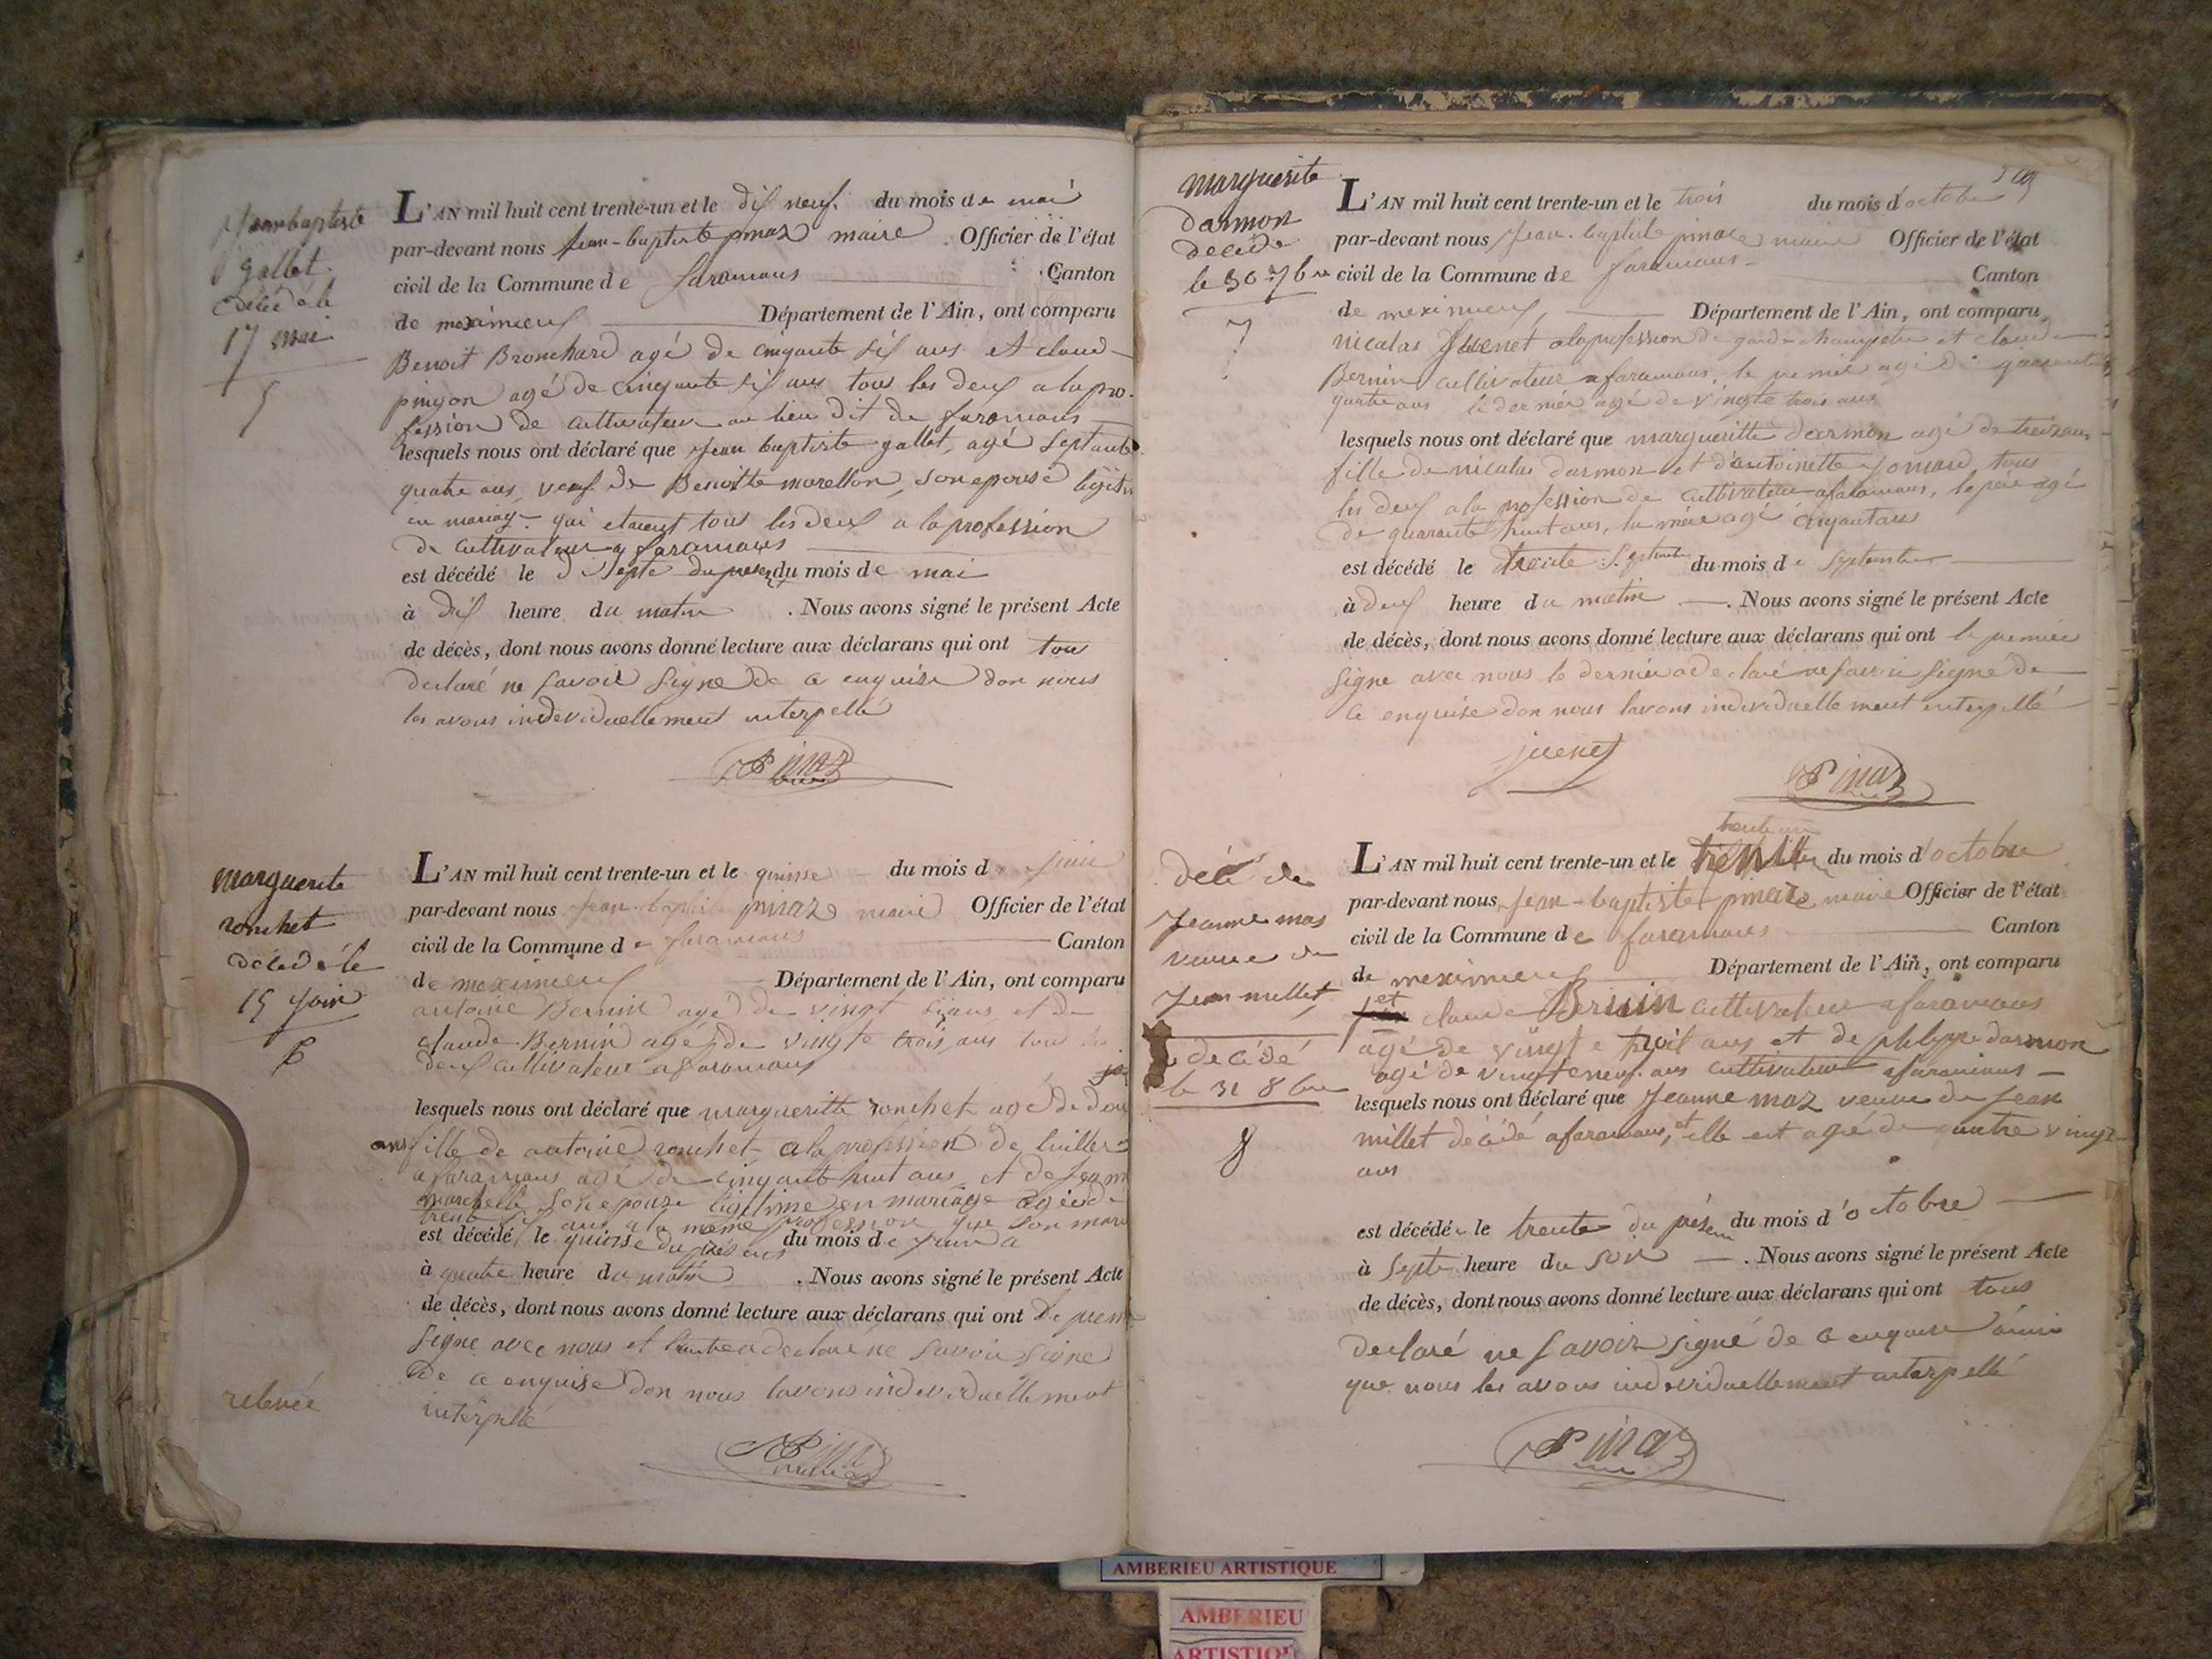 jean baptiste
gallet
décédé le
17 mai
5
L'AN mil huit cent trente-un et le dix neuf du mois de mai
par-devant nous jean-baptiste pinaz maire Officier de l'état
civil de la Commune de faramans Canton
de meximieux Département de l'Ain, ont comparu
Benoit Bronchard agé de cinqante six ans et claud
pinjon agé de cinqante six ans tous les deux a la pro-
fession de cultivateur au lieu dit de faramans
lesquels nous ont déclaré que jean baptiste gallet, agé septante
quatre ans, veuf de Benoitte morellon, son epouse légitim
en mariage qui etaient tous les deux a la profession
de cultivateur a faramans
est décédé le di septe du present du mois de mai
à dix heure du matin . Nous avons signé le présent Acte
de décès, dont nous avons donné lecture aux déclarans qui ont tous
declaré ne savoir signé de ce enquise don nous
les avons indeviduellement interpellé
Pinaz
marguerite
ronchet
décédé le
15 juin
6
relevée
L'AN mil huit cent trente-un et le quinse du mois de juin
par-devant nous jean-baptiste pinaz maire Officier de l'état
civil de la Commune de faramans Canton
de meximieux Département de l'Ain, ont comparu
antoine Bernin agé de vingt ans et de
claude Bernin agé de vingte trois ans tous les
deux cultivateur a faramans
lesquels nous ont déclaré que margueritte ronchet agé de dou
ans fille de antoine ronchet a la profession de
a faramans agé de cinqante huit ans et de
son epouse légitime en mariage agée de
trente six ans a la meme profession que son mari
est décédé le quinse du présens du mois de juin a
à quatre heure du matin . Nous avons signé le présent Acte
de décès, dont nous avons donné lecture aux déclarans qui ont
signe avec nous et l'autre a declaré ne savoir signe
de ce enquise don nous lavons indeviduellement
interpellé
Pinaz
marguerite
darmon
decédé
le 30 7bre
7
L'AN mil huit cent trente-un et le trois du mois d'octobre
par-devant nous jean-baptiste pinaz maire Officier de l'état
civil de la Commune de faramans Canton
de meximieux Département de l'Ain, ont comparu
nicolas juenet a la profession de garde champetre et claude
Bernin cultivateur a faramans, le premier agé de
quatre ans le dernier agé de vingte trois ans
lesquels nous ont déclaré que margueritte darmon agé de treize ans
fille de nicolas darmon et d'antoinette jomard tous
les deux a la profession de cultivateur a faramans, le père agé
de quarante huit ans, la mère agé cinqantans
est décédé le trente Septembre du mois de Septembre
à deux heure du matin . Nous avons signé le présent Acte
de décès, dont nous avons donné lecture aux déclarans qui ont le premier
signe avec nous le dernier a declaré ne savoir signé de
ce enquise don nous lavons indeviduellement interpellé
juenet
Pinaz
décé de
jeanne mas
veuve de
jean millet
decédé
le 31 8bre
8
trente un
L'AN mil huit cent trente-un et le du mois d'octobre
par-devant nous jean-baptiste pinaz maire Officier de l'état
civil de la Commune de faramans Canton
de meximieux Département de l'Ain, ont comparu
et claude Bernin cultivateur a faramans
agé de vingte troit ans et de phlippe darmon
agé de vingte neuf ans cultivateur a faramans
lesquels nous ont déclaré que jeanne maz veuve de jean
millet décédé a faramans, et elle est agé de quatre vingt
ans
est décédée le trente du présen du mois d'octobre
à septe heure du soir . Nous avons signé le présent Acte
de décès, dont nous avons donné lecture aux déclarans qui ont tous
declaré ne savoir signé de ce enquise ainsi
que nous les avons indeviduellement interpellé
Pinaz
AMBERIEU ARTISTIQUE
AMBERIEU
ARTISTIQUE